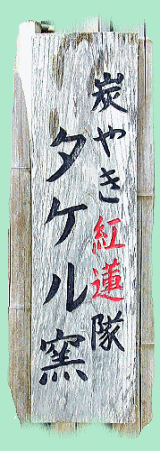 炭やき紅蓮隊
タケル窯